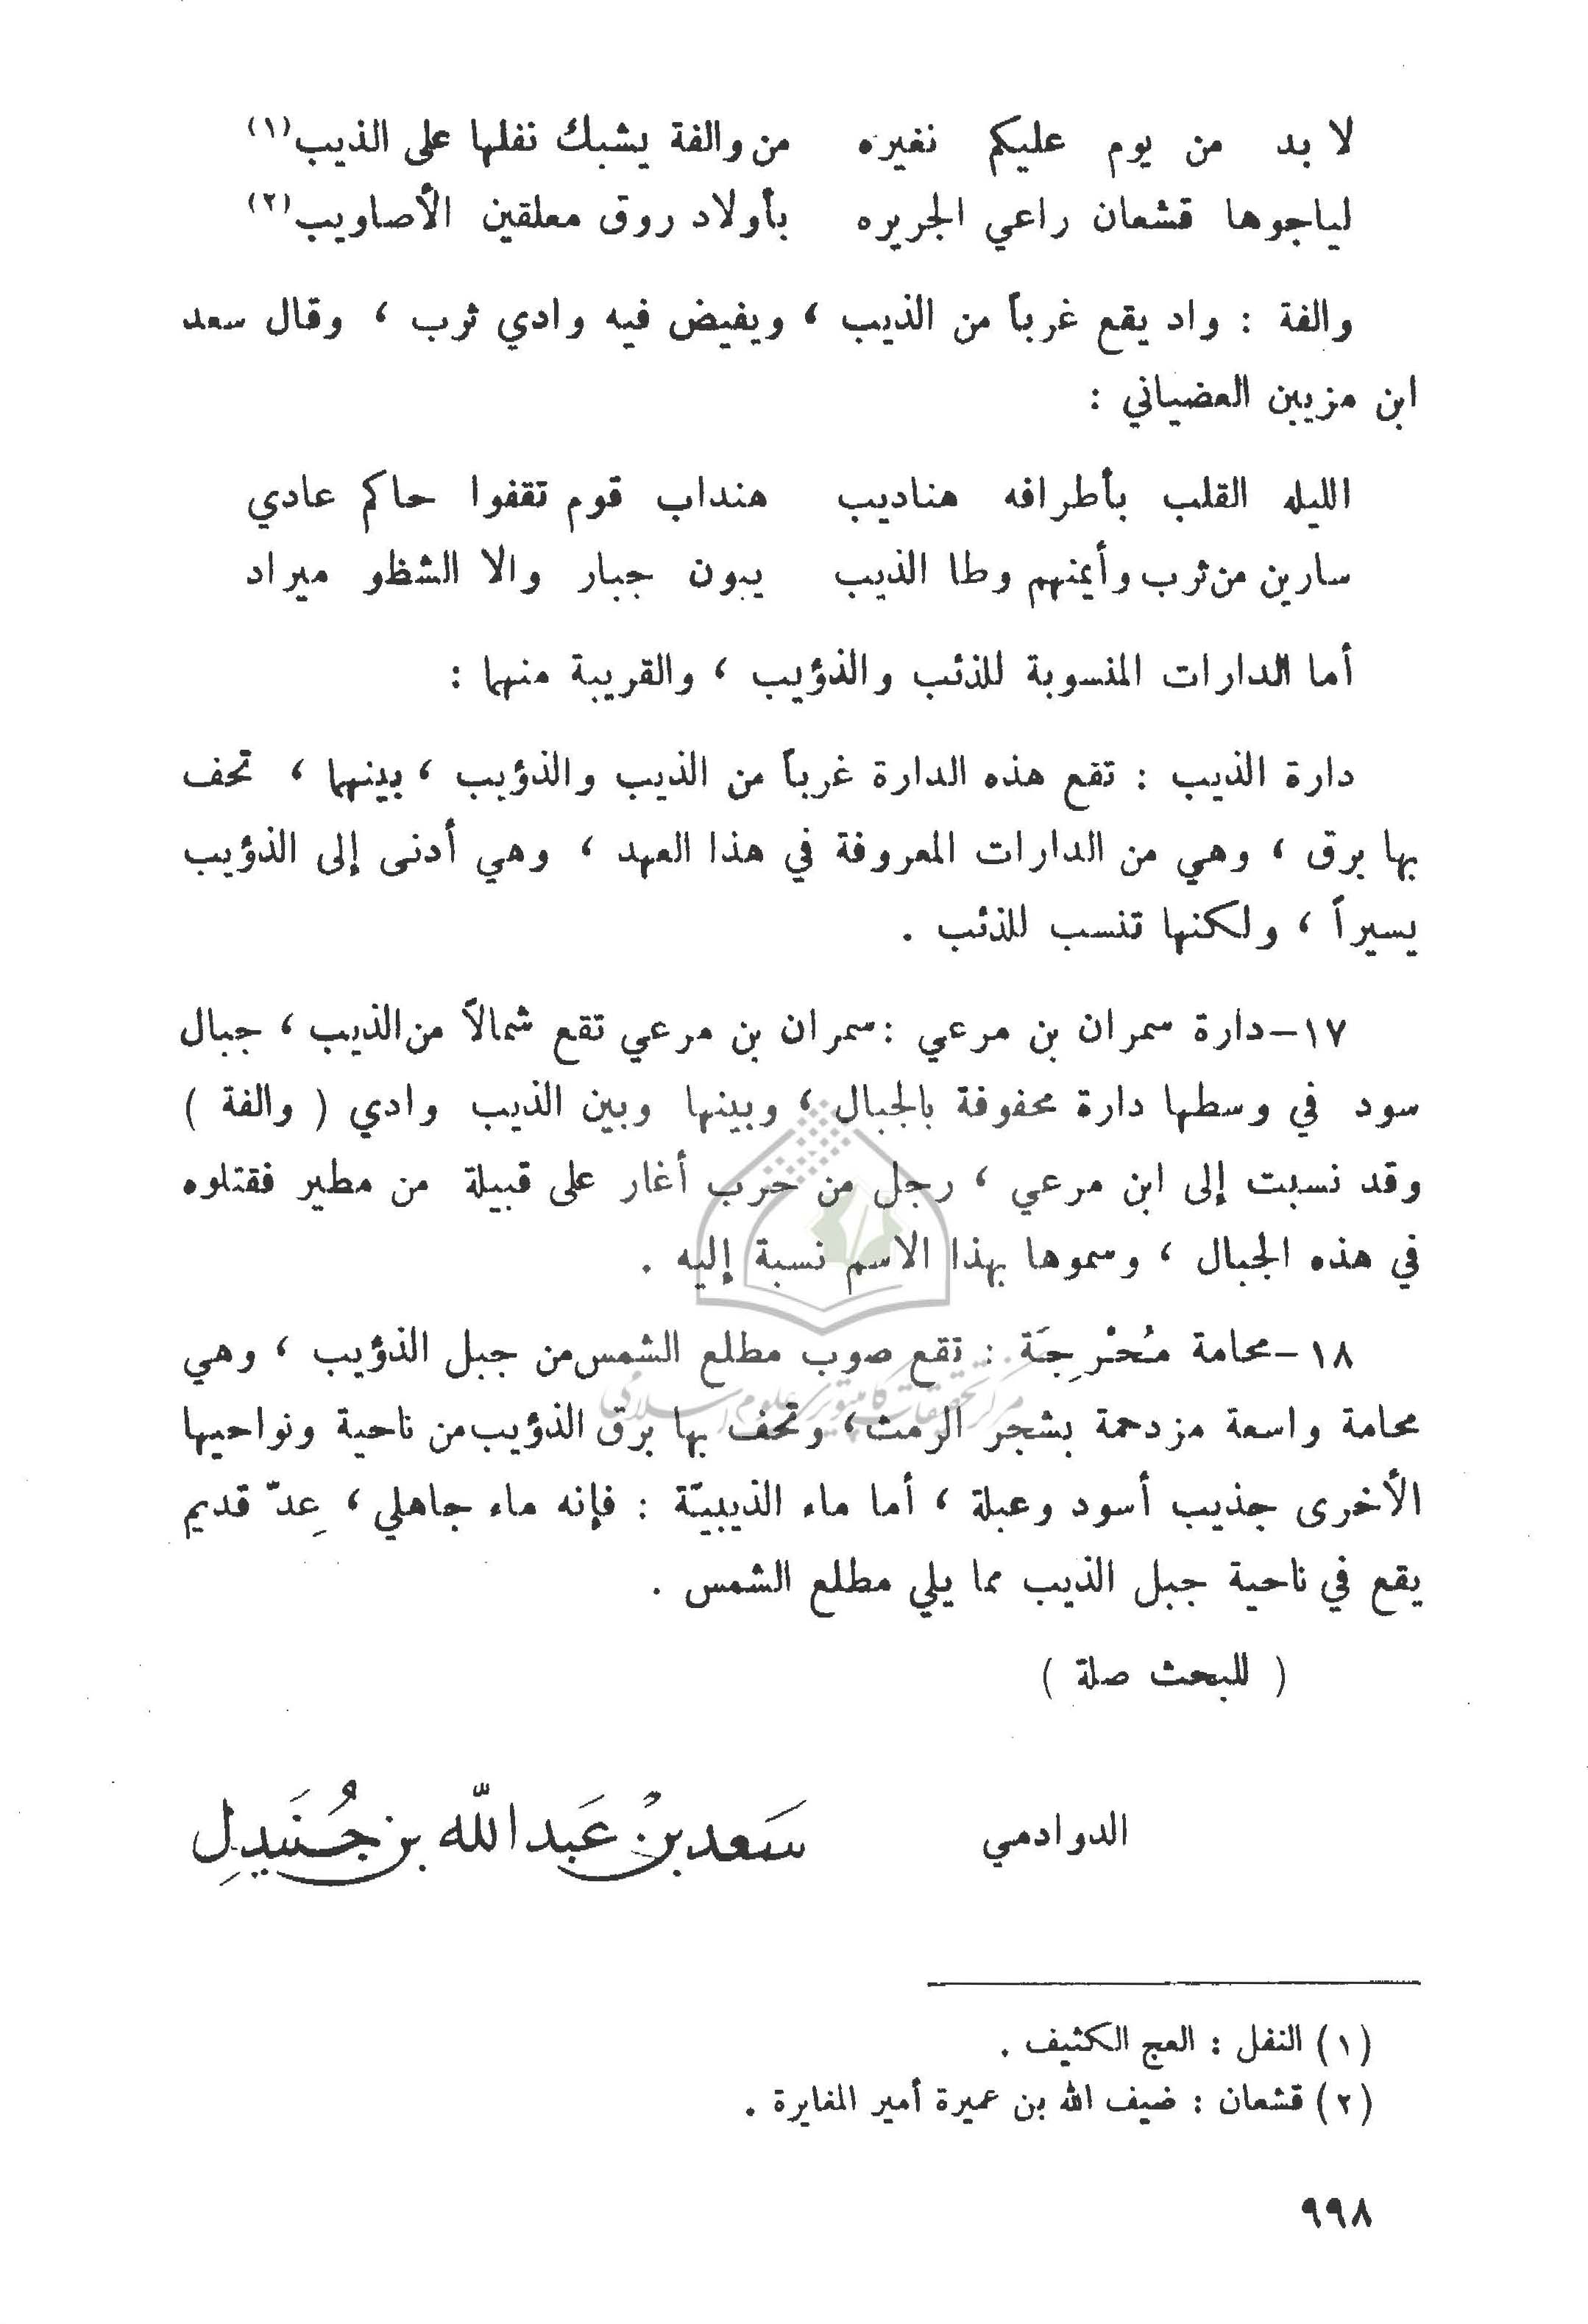 لا بد من يوم عليكم نغيره من والفة يشبك نفلها على الذيب(١)
لياجوها قشعان راعي الجريره بأولاد روق معلقين الأصاويب(٢)
والفة : واد يقع غرباً من الذيب ، ويفيض فيه وادي ثرب ، وقال سعد
ابن مزيين العضياني :
الليله القلب بأطرافه هناديب هنداب قوم تقفوا حاكم عادي
سارين من ثرب وأيمنهم وطا الذيب يبون جبار والا الشظو ميراد
أما الدارات المنسوبة للذئب والذؤيب ، والقريبة منهما :
دارة الذيب : تقع هذه الدارة غرباً من الذيب والذؤيب ، بينهما ، تحف
بها برق ، وهي من الدارات المعروفة في هذا العهد ، وهي أدنى إلى الذؤيب
يسيراً ، ولكنها تنسب للذئب .
١٧–دارة سمران بن مرعي : سمران بن مرعي تقع شمالاً من الذيب ، جبال
سود في وسطها دارة محفوفة بالجبال ، وبينها وبين الذيب وادي ( والفة )
وقد نسبت إلى ابن مرعي ، رجل من حرب أغار على قبيلة من مطير فقتلوه
في هذه الجبال ، وسموها بهذا الاسم نسبة إليه .
١٨–محامة مُحْرِجَة : تقع صوب مطلع الشمس من جبل الذؤيب ، وهي
محامة واسعة مزدحمة بشجر الرمث ، وتحف بها برق الذؤيب من ناحية ونواحيها
الأخرى جذيب أسود وعبلة ، أما ماء الذيبيّة : فإنه ماء جاهلي ، عِدّ قديم
يقع في ناحية جبل الذيب مما يلي مطلع الشمس .
( للبحث صلة )
الدوادمي سَعد بنْ عَبد اللّه بن جُنَيدِل
(١) النفل : العج الكثيف .
(٢) قشعان : ضيف الله بن عميرة أمير المغايرة .
٩٩٨
مركز تحقيقات كامپيوتری علوم اسلامی